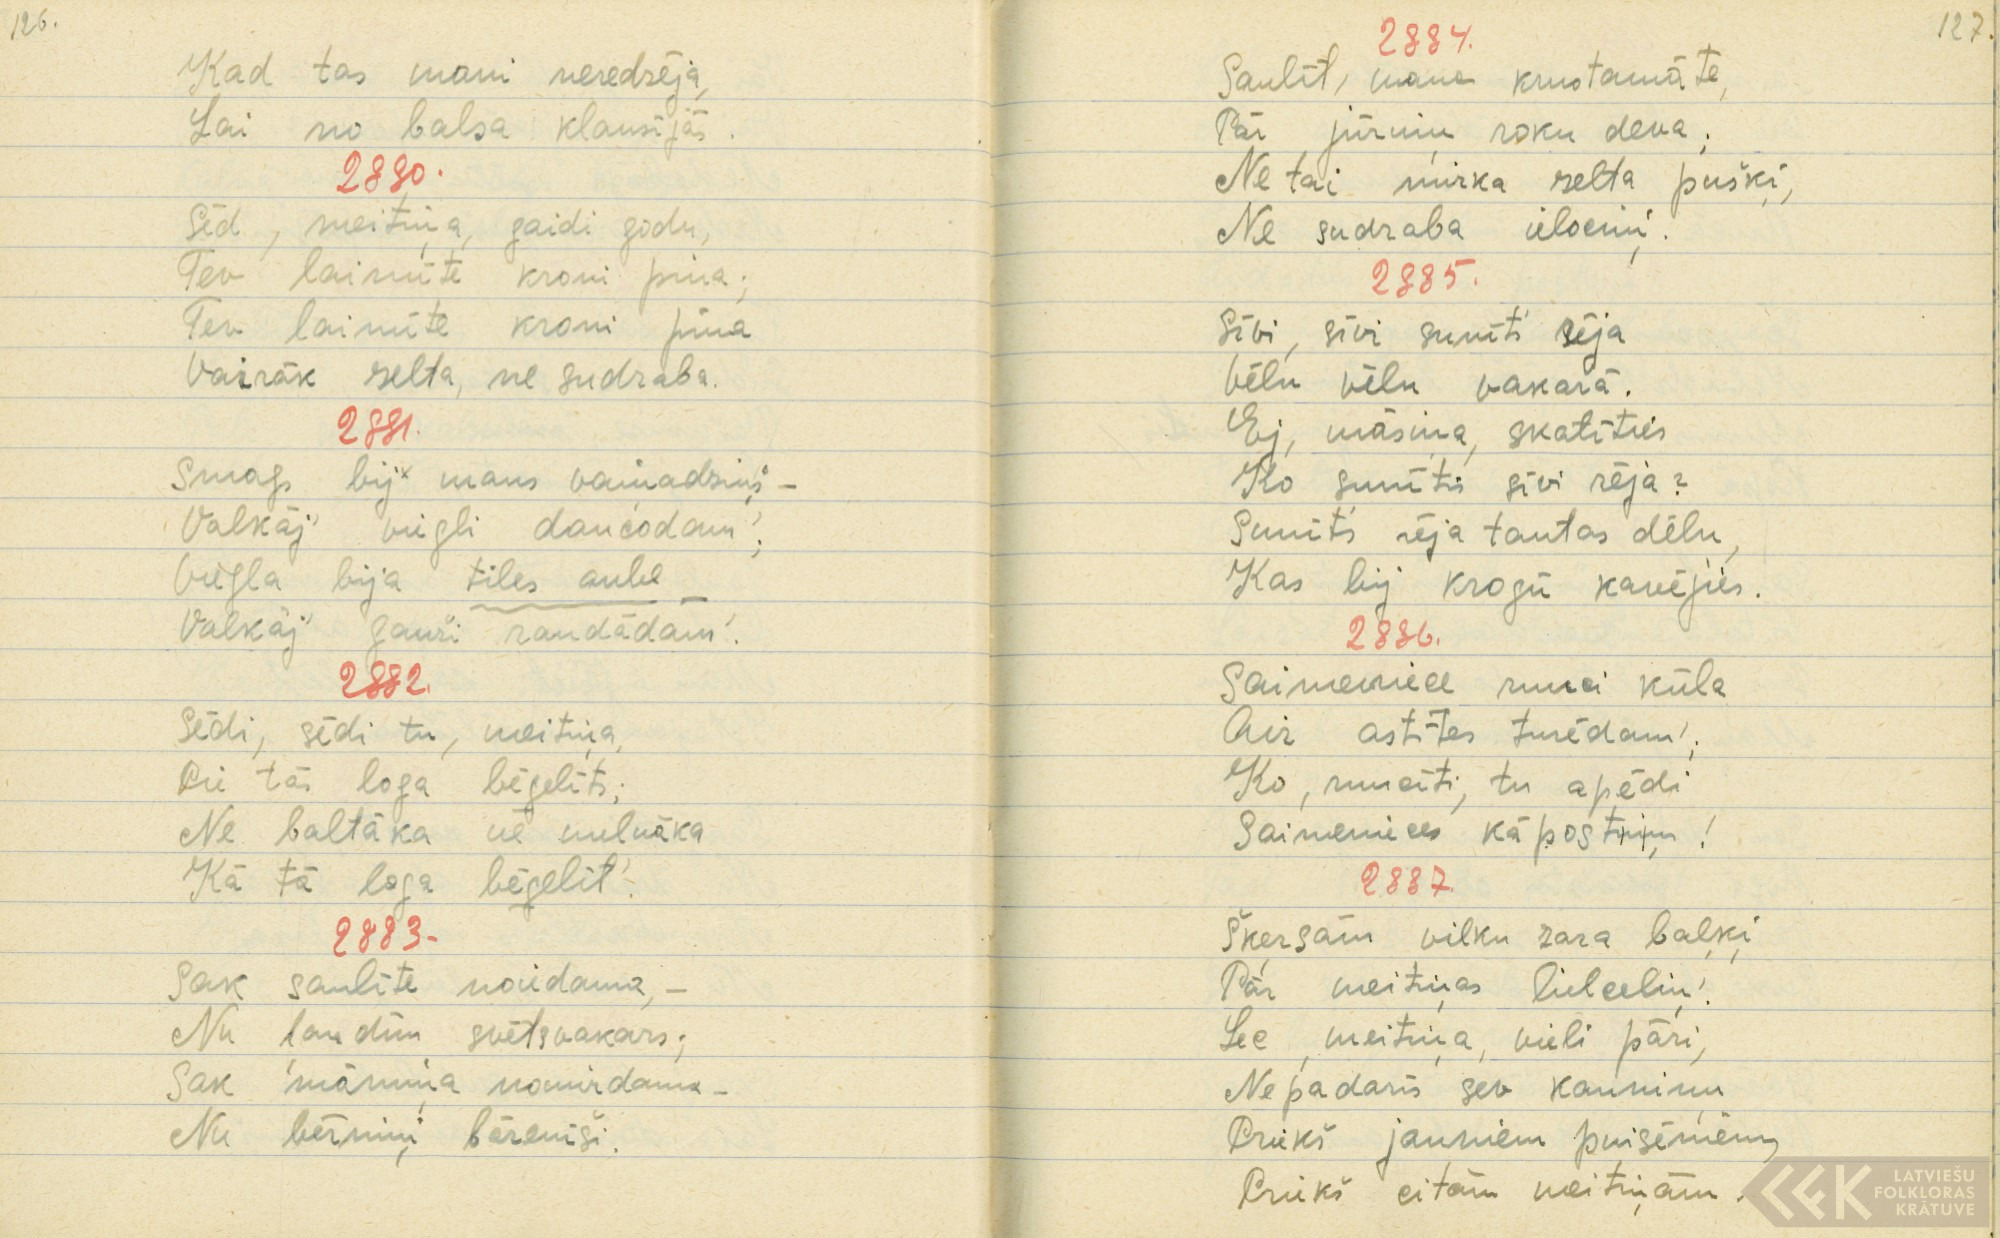 126.
Kad tas mani neredzēja,
Lai no balsa klausījās.
2880.
Sēd, meitiņa, gaidi godu,
Tev laimīte kroni pina;
Tev laimīte kroni pina
Vairāk zelta, ne sudraba.
2881.
Smags bij' mans vainadziņš –
Valkāj' viegli dancodam';
Viegla bija tiles aube
Valkāj' gauži raudādam'.
2882.
Sēdi, sēdi tu, meitiņa,
Pie tās loga bēgelīts;
Ne baltāka ne melnāka
Kā tā loga bēgelīt'.
2883.
Sak saulīte noiedama, –
Nu laudīm svētsvakars;
Sak māmiņa nomirdama –
Nu bērniņi bāreņīši.
127.
2884.
Saulīt, mana krustamāte,
Pār jūriņu roku deva;
Ne tai mirka zelta pušķi,
Ne sudraba vēlociņi.
2885.
Sīvi, sīvi sunīt's rēja
Vēlu vēlu vakarā.
Ej, māsiņa, skatīties
Ko sunītis sīvi rēja?
Sunīt's rēja tautas dēlu,
Kas bij krogū kavējies.
2886.
Saimeniece runci kūla
Aiz astītes turēdam';
Ko,runcīti, tu apēdi
Saimenieces kāpostiņu!
2887.
Šķērsām vilku zara baļķi
Pār meitiņas lielceliņ'.
Lec, meitiņa, viegli pāri,
Nepadarīs sev kauniņu
Priekš jauniem puisēniem,
Priekš citām meitiņām.
LATVIEŠU
FOLKLORAS
KRĀTUVE